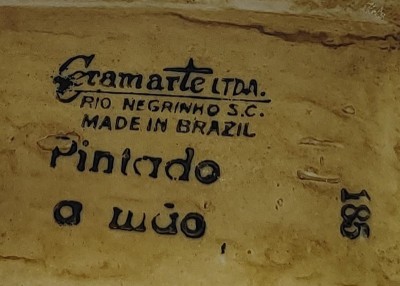 Ceramarte LTDA.
RIO NEGRINHO S.C.
MADE IN BRAZIL
Pintado
a mão
185